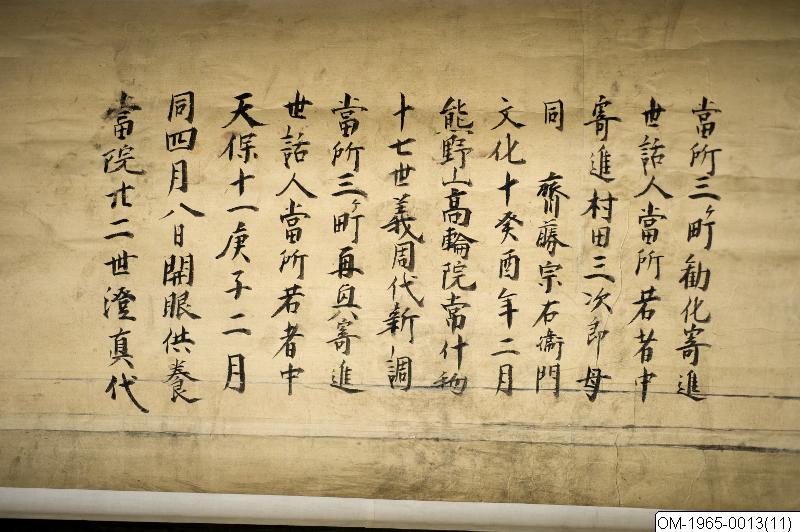 當所三町勧化寄進
世話人當所若者中
寄進村田三次郎母
同　齋藤宗右衞門
文化十癸酉年二月
熊野山高輪院常什物
十七世義周代新調
當所三町再興寄進
世話人當所若者中
天保十一庚子二月
同四月八日開眼供養
當院廿二世澄真代
OM-1965-0013(11)